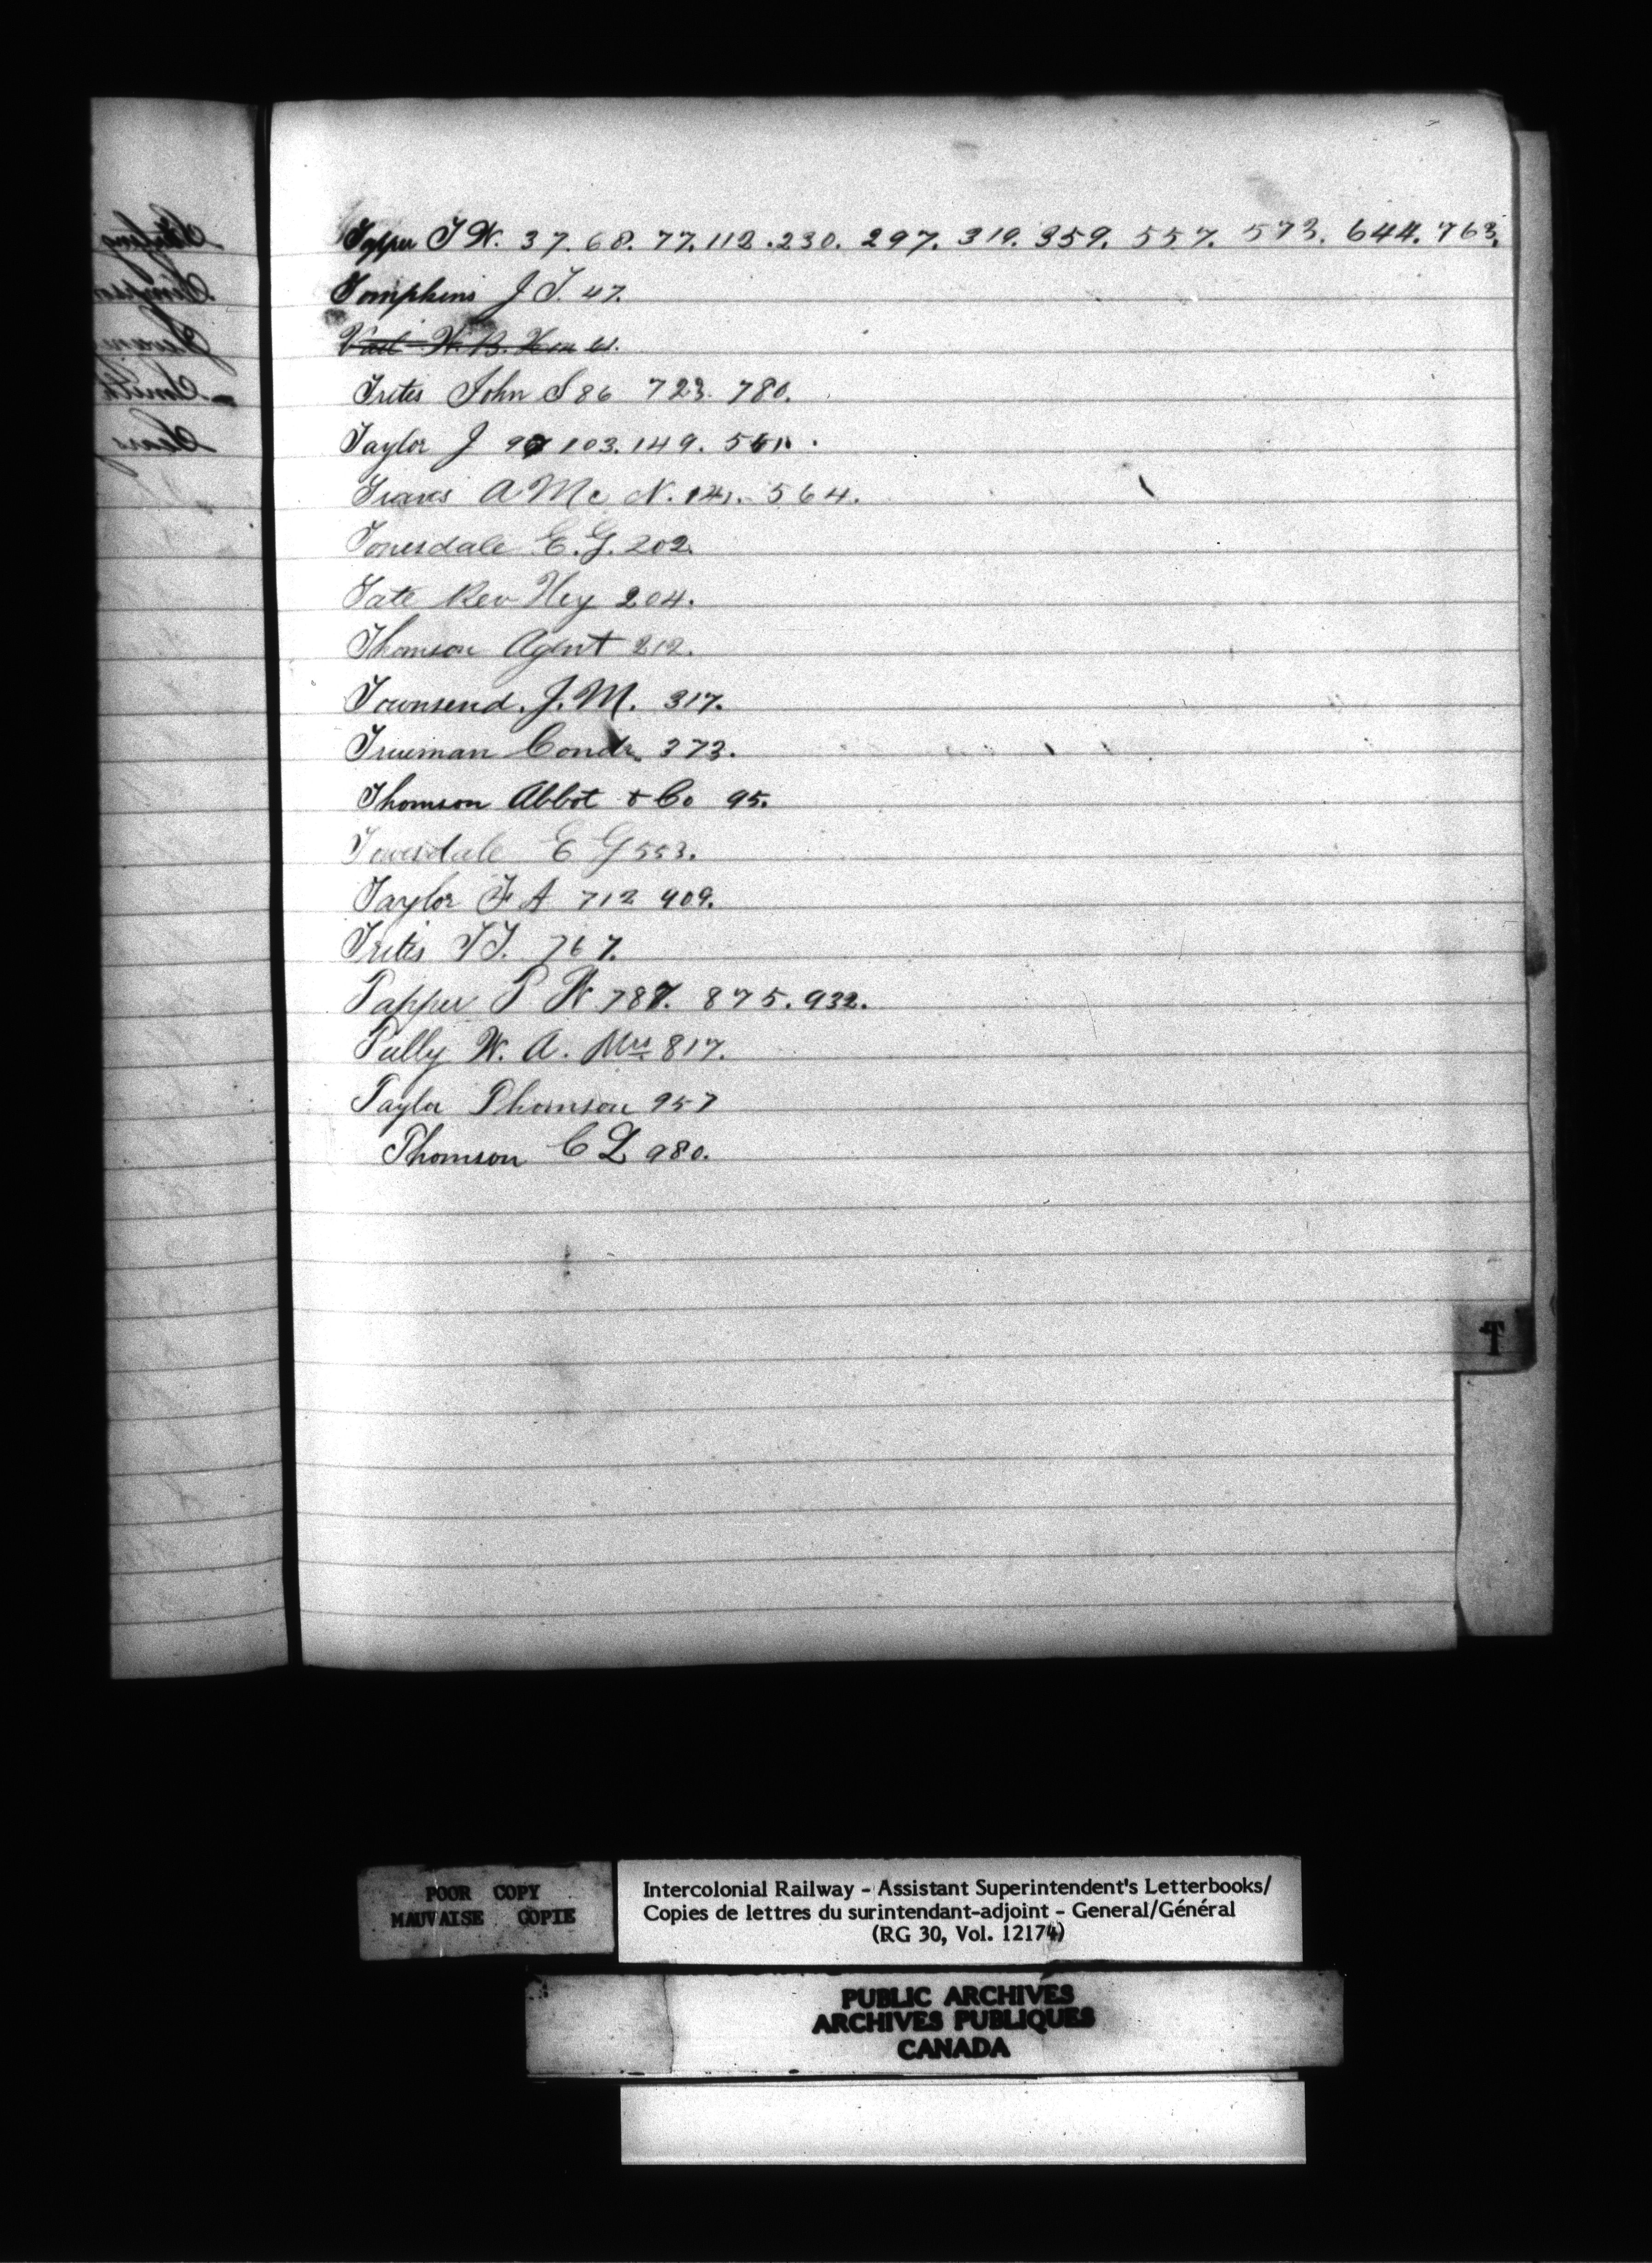 Tapper T W. 37. 68. 77. 112. 230. 297. 319. 359. 557. 573. 644. 763.
Tompkins J T. 47.
Vail W. B. Hon 61.
Trites John S 86 723. 780.
Taylor J 103. 149.
Travis A Mc N. 141. 564.
Tonesdale E. G. 202.
Tate Rev Hy 204.
Thomson Agent 212.
Townsend. J. M. 317.
Trueman Condr. 373.
Thomson Abbot & Co 95.
E G 553.
Taylor F A 712 909.
Trites T T. 767.
Tapper T W 787. 875. 932.
Tully W. A. Mrs 817.
Taylor Thomson 957
Thomson C L 980.
T
POOR COPY
MAUVAISE COPIE
Intercolonial Railway - Assistant Superintendent's Letterbooks/
Copies de lettres du surintendant-adjoint - General/Général
(RG 30, Vol. 12174)
PUBLIC ARCHIVES
ARCHIVES PUBLIQUES
CANADA